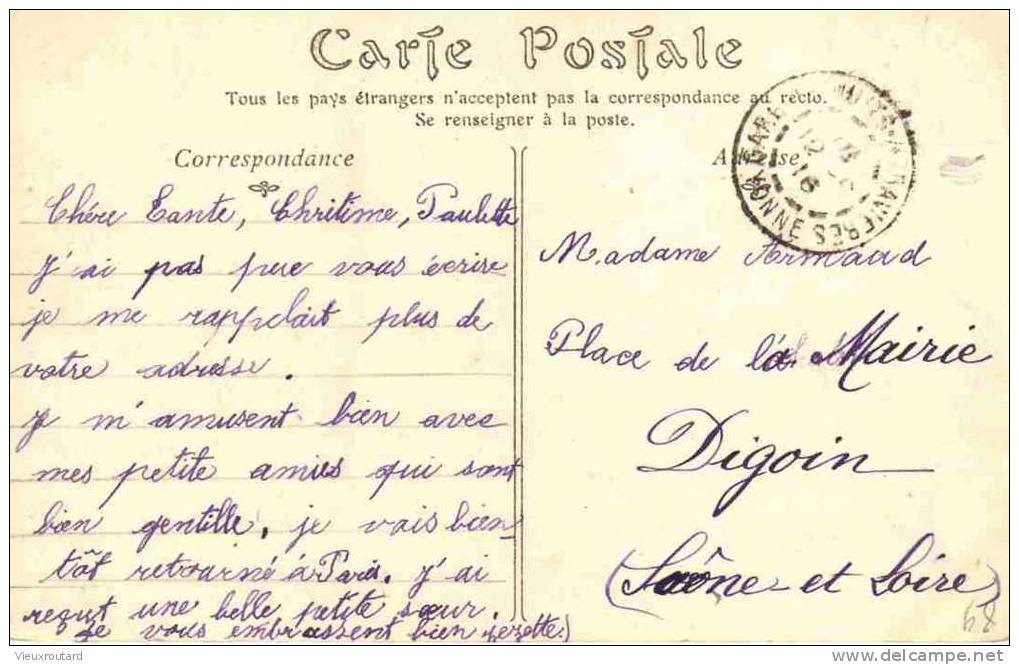 Carte Postale
Tous les pays étrangers n'acceptent pas la correspondance au recto.
Se renseigner à la poste.
Correspondance
Chére Tante, Chritime, Paulette
J'ai pas pue vous écrire
je me rappelait plus de
votre adresse.
Je m'amusent bien avec
mes petite amies qui sont
bien gentille, je vais bien-
tôt retourné à Paris. J'ai
reçut une belle petite sœur.
Je vous embrassent bien
Adresse
Madame Armaud
Place de la Mairie
Digoin
(Saône-et Loire)
68
GARE
RAVIERES YONNE
12
16
Vieuxroutard
www.delcampe.net